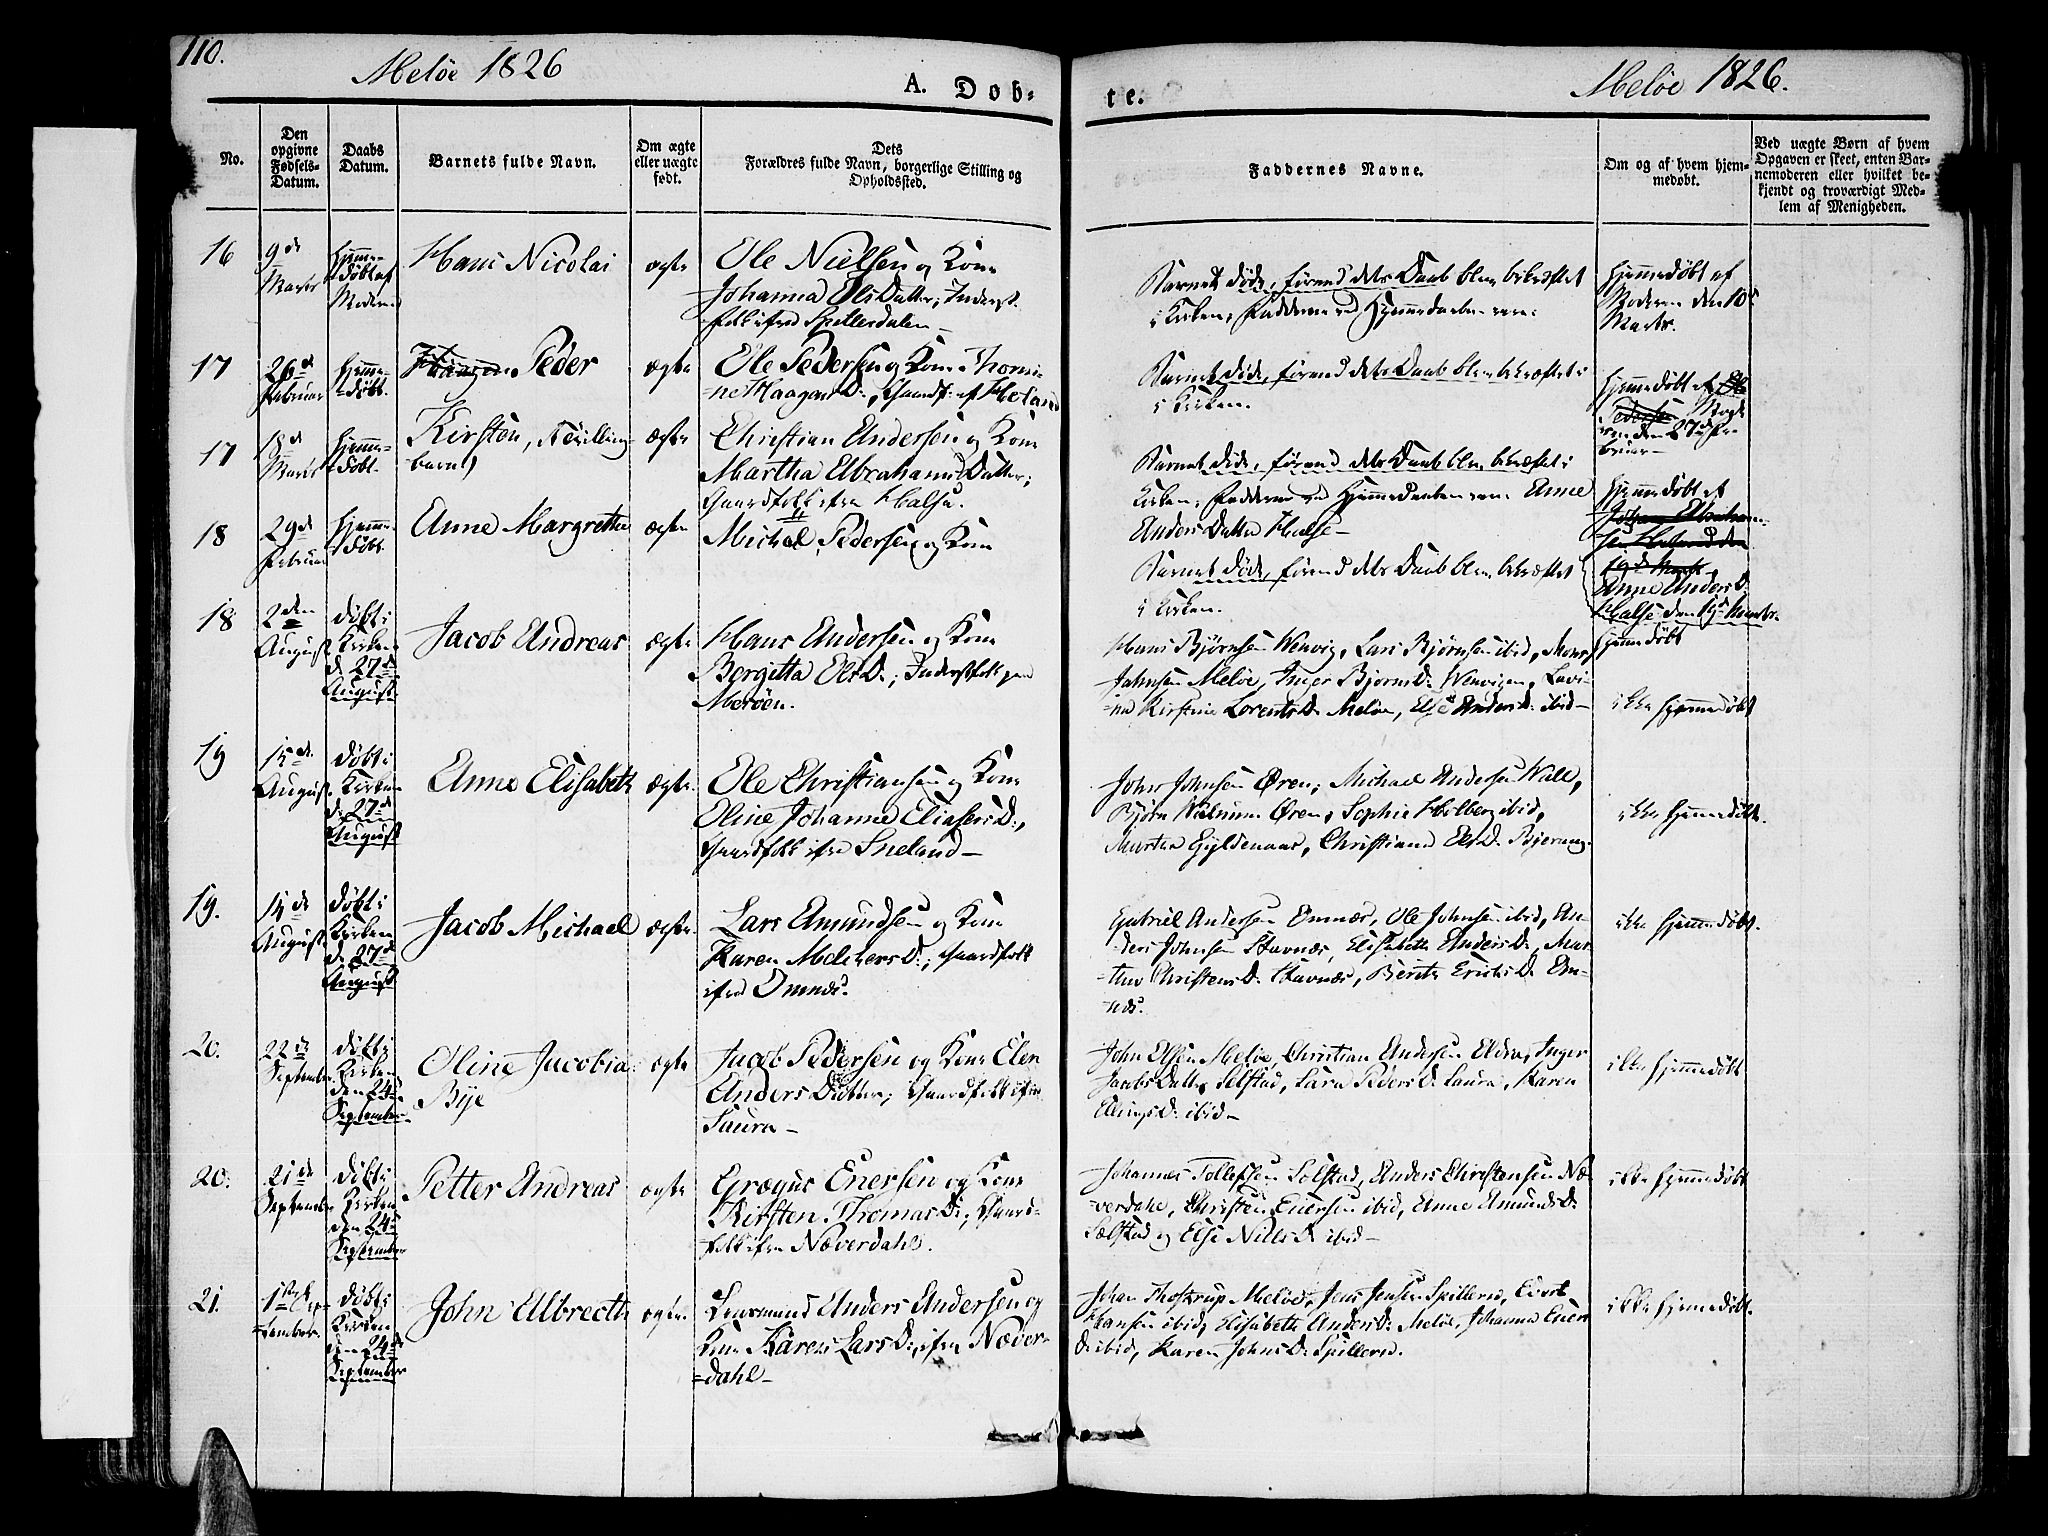 110.
Meløe 1826
A. Dob-
te.
Meløe 1826.
No.
Den
opgivne
Fødsels-
Datum.
Daabs
Datum.
Barnets fulde Navn.
Om ægte
eller uægte
født.
Dets
Forældres fulde Navn, borgerlige Stilling og
Opholdssted.
Faddernes Navne.
Om og af hvem hjem-
medøbt.
Ved uægte Børn af hvem
Opgaven er skeet, enten Bar-
nemoderen eller hvilket be-
kjendt og troværdigt Med-
lem af Menigheden.
16
9de
Marts
Hjemme-
døbt af
Moderen
Hans Nicolai
ægte
Ole Nielsen og Kone
Johanna Ols Datter, Inderst-
folk ifra Spillerdalen
Barnet døde, førend dets Daab blev bekræftet
i Kirken; Faddere ved Hjemmedaaben vare:
Hjemmedøbt af
Moderen den 10
Marts.
17
26de
Februar
Hjemme-
døbt.
Peder
ægte
Ole Pedersen og Kone Thomi-
ne Haagens D., Gaardf. af Meland
Barnet døde, førend dets Daab blev bekræftet
i Kirken.
Hjemmedøbt af Ole
Pedersen
den 27de Fe-
bruar
17
18de
Marts
Hjemme-
døbt.
Kirsten, Tvilling-
barn
ægte
Christian Andersen og Kone
Martha Abrahams Datter;
Gaardfolk ifra Halsa.
Barnet døde, førend dets Daab blev bekræftet i
Kirken; Faddere ved Hjemmedaaben vare Anne
Anders Datter Halse
Hjemmedøbt af
Anne Anders D.
Halse den
18
29de
Februar
Hjemme-
døbt
Anne Margretha
ægte
Michel Pedersen og Kone
Barnet døde, førend dets Daab blev bekræftet
i Kirken.
hjemmedøbt
18
2den
August
døbt i
Kirken
d. 27de
August
Jacob Andreas
ægte
Hans Andersen og Kone
Bergitta Ols D.; Inderstfolk paa
Merøen.
Hans Bjørnsen Wenvig, Lars Bjørnsen ibid, Mons
Johnsen Meløe, Inger Bjørns D. Wenvigen, Lovi-
na Kirstine Lorents D. Meløe, Else Anders D. ibid
ikke hjemmedøbt
19
15de
August
døbt i
Kirken
d. 27de
August
Anne Elisabeth
ægte
Ole Christiansen og Kone
Oline Johanne Eliasers D.,
Gaardfolk ifra Sneland
John Johnsen Øren, Michael Andersen Wall,
Bjørn Øren, Sophie Holberg ibid,
Martha Gyldenaas, Christiana Ols D. Bjerang
ikke hjemmedøbt.
19.
14de
August
døbt i
Kirken
d. 27de
August
Jacob Michael
ægte
Lars Amundsen og Kone
Karen Melchers D., Gaardfolk
ifra Omnes.
Gabriel Andersen Omnæs, Ole Johnsen ibid, An-
ders Johnsen Stavnæs, Elisabeth Anders D., Mar-
tha Christens D. Stavnæs, Berith Erichs D. Om-
næs.
ikke hjemmedøbt.
20.
22de
September
døbt i
Kirken
den 24de
September
Oline Jacobia
Bye
ægte
Jacob Pedersen og Kone Elen
Anders Datter; Gaardfolk ifra
Saura
John Olsen Meløe, Christian Andersen, Inger
Jacobs Datter Selstad, Sara Peders D. Saura, Karen
Ellings D. ibid
ikke hjemmedøbt
20.
21de
September
døbt i
Kirken
den 24de
September
Petter Andreas
ægte
Grægus Enersen og Kone
Kirsten Thomas D., Gaard-
folk ifra Næverdahl.
Johannes Tollefsen Selstad, Anders Christensen Næ-
verdahl, Christen Enersen ibid, Anne Amunds D.
Selstad og Else Niels D. ibid
ikke hjemmedøbt
21.
1ste Sep-
tember.
døbt i
Kirken
den 24de
September
John Albrecht
ægte.
Lensmand Anders Andersen og
Kone Karen Lars D., ifra Næver-
dahl
Johan Thostrup Meløe, Jens Jensen Spilleren, Evert
Hansen ibid, Elisabeth Anders D. Meløe, Johanna Eners
D. ibid, Karen Johns D. Spilleren.
ikke hjemmedøbt.